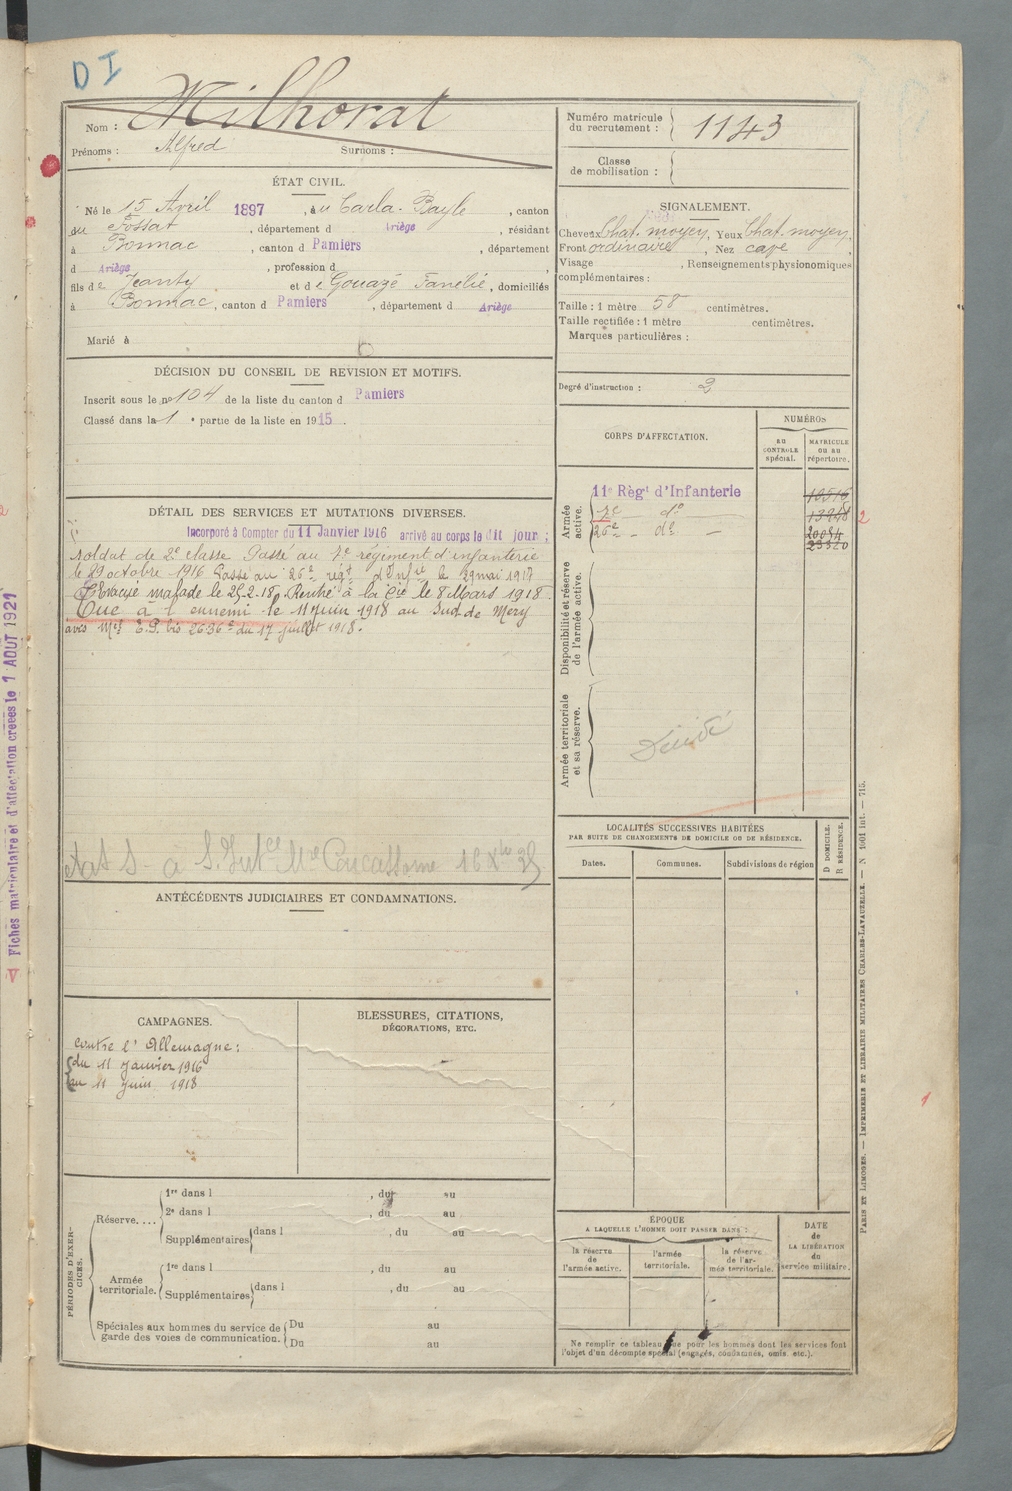 D I
Nom : Milhorat
Prénoms : Alfred Surnoms :
Numéro matricule
du recrutement : 1143
Classe
de mobilisation :
ÉTAT CIVIL.
Né le 15 Avril 1897, au Carla-Bayle, canton
du Fossat, département d Ariège, résidant
à Bonnac, canton d Pamiers, département
d Ariège, profession d
fils de Jeanty et de Gouazé Fanélie, domiciliés
à Bonnac, canton d Pamiers, département d Ariège
Marié à
SIGNALEMENT.
Cheveux Chat. moyen, Yeux Chat. moyen,
Front ordinaire, Nez cave
Visage , Renseignements physionomiques
complémentaires :
Taille : 1 mètre 58 centimètres.
Taille rectifiée : 1 mètre centimètres.
Marques particulières :
Degré d'instruction : 2
DÉCISION DU CONSEIL DE REVISION ET MOTIFS.
Inscrit sous le no 104 de la liste du canton d Pamiers
Classé dans la 1 e partie de la liste en 1915.
CORPS D'AFFECTATION.
NUMÉROS
AU CONTROLE spécial.
MATRICULE OU AU répertoire.
Armée active.
11e Régt d'Infanterie 10516
7e do 13948 2
26e do 20054
23320
Disponibilité et réserve de l'armée active.
Armée territoriale et sa réserve.
DÉTAIL DES SERVICES ET MUTATIONS DIVERSES.
Incorporé à Compter du 11 Janvier 1916 arrivé au corps le dit jour ;
Soldat de 2e classe Passé au 7e régiment d'infanterie
le 29 octobre 1916 Passé au 26e régt d'Infrie le 29 mai 1917
Evacué malade le 25-2-18, Rentré à la Cie le 8 Mars 1918.
Tué à l'ennemi le 11 juin 1918 au Sud de Mery
avis Mel E.P. bis 2636e du 17 juillet 1918.
LOCALITÉS SUCCESSIVES HABITÉES
PAR SUITE DE CHANGEMENTS DE DOMICILE OU DE RÉSIDENCE.
Dates. Communes. Subdivisions de région
D DOMICILE.
R RÉSIDENCE.
ANTÉCÉDENTS JUDICIAIRES ET CONDAMNATIONS.
CAMPAGNES.
Contre l'Allemagne :
du 11 Janvier 1916
au 11 Juin 1918
BLESSURES, CITATIONS,
DÉCORATIONS, ETC.
PÉRIODES D'EXERCICES.
Réserve....
1re dans l , du au
2e dans l , du au
Supplémentaires dans l , du au
Armée territoriale.
1re dans l , du au
Supplémentaires dans l , du au
Spéciales aux hommes du service de garde des voies de communication.
Du au
Du au
ÉPOQUE
A LAQUELLE L'HOMME DOIT PASSER DANS :
la réserve de l'armée active.
l'armée territoriale.
la réserve de l'armée territoriale.
DATE de LA LIBÉRATION du service militaire.
Ne remplir ce tableau que pour les hommes dont les services font
l'objet d'un décompte spécial (engagés, condamnés, omis, etc.).
Fiches matriculaire et d'affectation créées le 1 AOUT 1921
PARIS ET LIMOGES. — IMPRIMERIE ET LIBRAIRIE MILITAIRES CHARLES-LAVAUZELLE. — N 1601 Int. — 715.